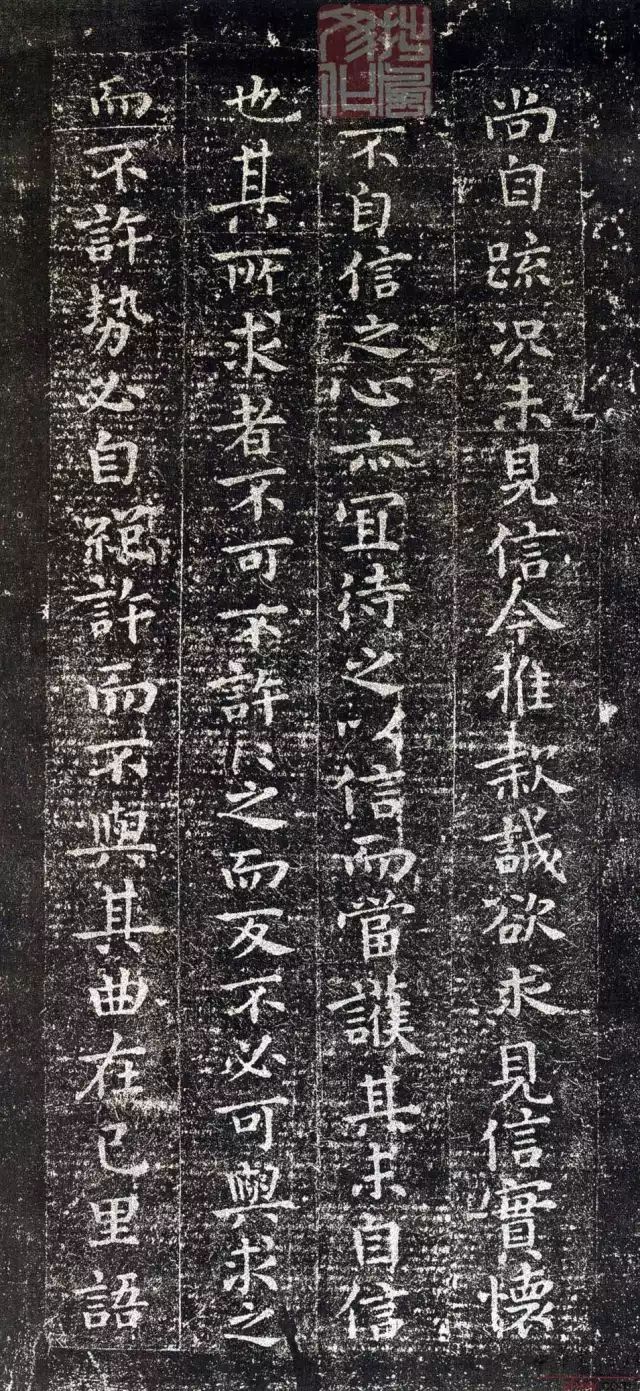 拙風文化
尚自踈况未見信今推款誠欲求見信實懷
不自信之心亦宜待之以信而當護其未自信
也其所求者不可不許〻之而反不必可與求之
而不許势必自絕許而不與其曲在己里語